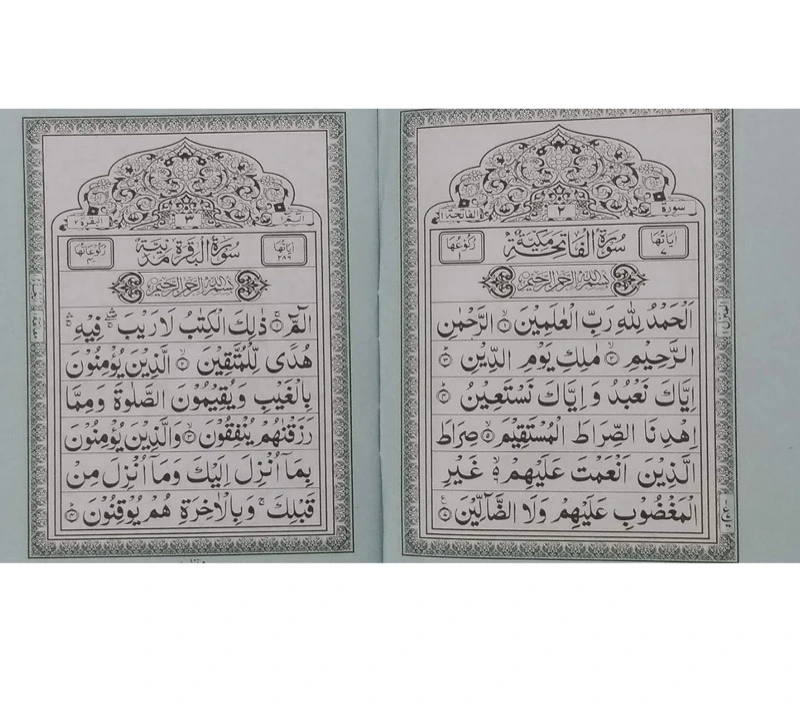 سورة
٢
الفاتحة ١
اٰيَاتُهَا
٧
سُوْرَةُ الْفَاتِحَةِ مَكِّيَّةٌ
رُكُوْعُهَا
١
بِسْمِ اللّٰهِ الرَّحْمٰنِ الرَّحِيْمِ
اَلْحَمْدُ لِلّٰهِ رَبِّ الْعٰلَمِيْنَ ۙ﴿١﴾ الرَّحْمٰنِ
الرَّحِيْمِ ۙ﴿٢﴾ مٰلِكِ يَوْمِ الدِّيْنِ ؕ﴿٣﴾
اِيَّاكَ نَعْبُدُ وَ اِيَّاكَ نَسْتَعِيْنُ ؕ﴿٤﴾
اِهْدِنَا الصِّرَاطَ الْمُسْتَقِيْمَ ۙ﴿٥﴾ صِرَاطَ
الَّذِيْنَ اَنْعَمْتَ عَلَيْهِمْ ۙ۬ غَيْرِ
الْمَغْضُوْبِ عَلَيْهِمْ وَلَا الضَّآلِّيْنَ
الٓمّٓ ١
٣
البقرة ٢
اٰيَاتُهَا
٢٨٦
سُوْرَةُ الْبَقَرَةِ مَدَنِيَّةٌ
رُكُوْعَاتُهَا
٤٠
بِسْمِ اللّٰهِ الرَّحْمٰنِ الرَّحِيْمِ
الٓمّٓ ۚ﴿١﴾ ذٰلِكَ الْكِتٰبُ لَا رَيْبَ ۛۖ فِيْهِ ۛۚ
هُدًى لِّلْمُتَّقِيْنَ ۙ﴿٢﴾ الَّذِيْنَ يُؤْمِنُوْنَ
بِالْغَيْبِ وَيُقِيْمُوْنَ الصَّلٰوةَ وَمِمَّا
رَزَقْنٰهُمْ يُنْفِقُوْنَ ۙ﴿٣﴾ وَالَّذِيْنَ يُؤْمِنُوْنَ
بِمَآ اُنْزِلَ اِلَيْكَ وَمَآ اُنْزِلَ مِنْ
قَبْلِكَ ۚ وَبِالْاٰخِرَةِ هُمْ يُوْقِنُوْنَ ؕ﴿٤﴾